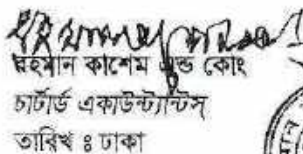 রহমান কাশেম এন্ড কোং
চার্টার্ড একাউন্ট্যান্টস্
তারিখ ঃ ঢাকা